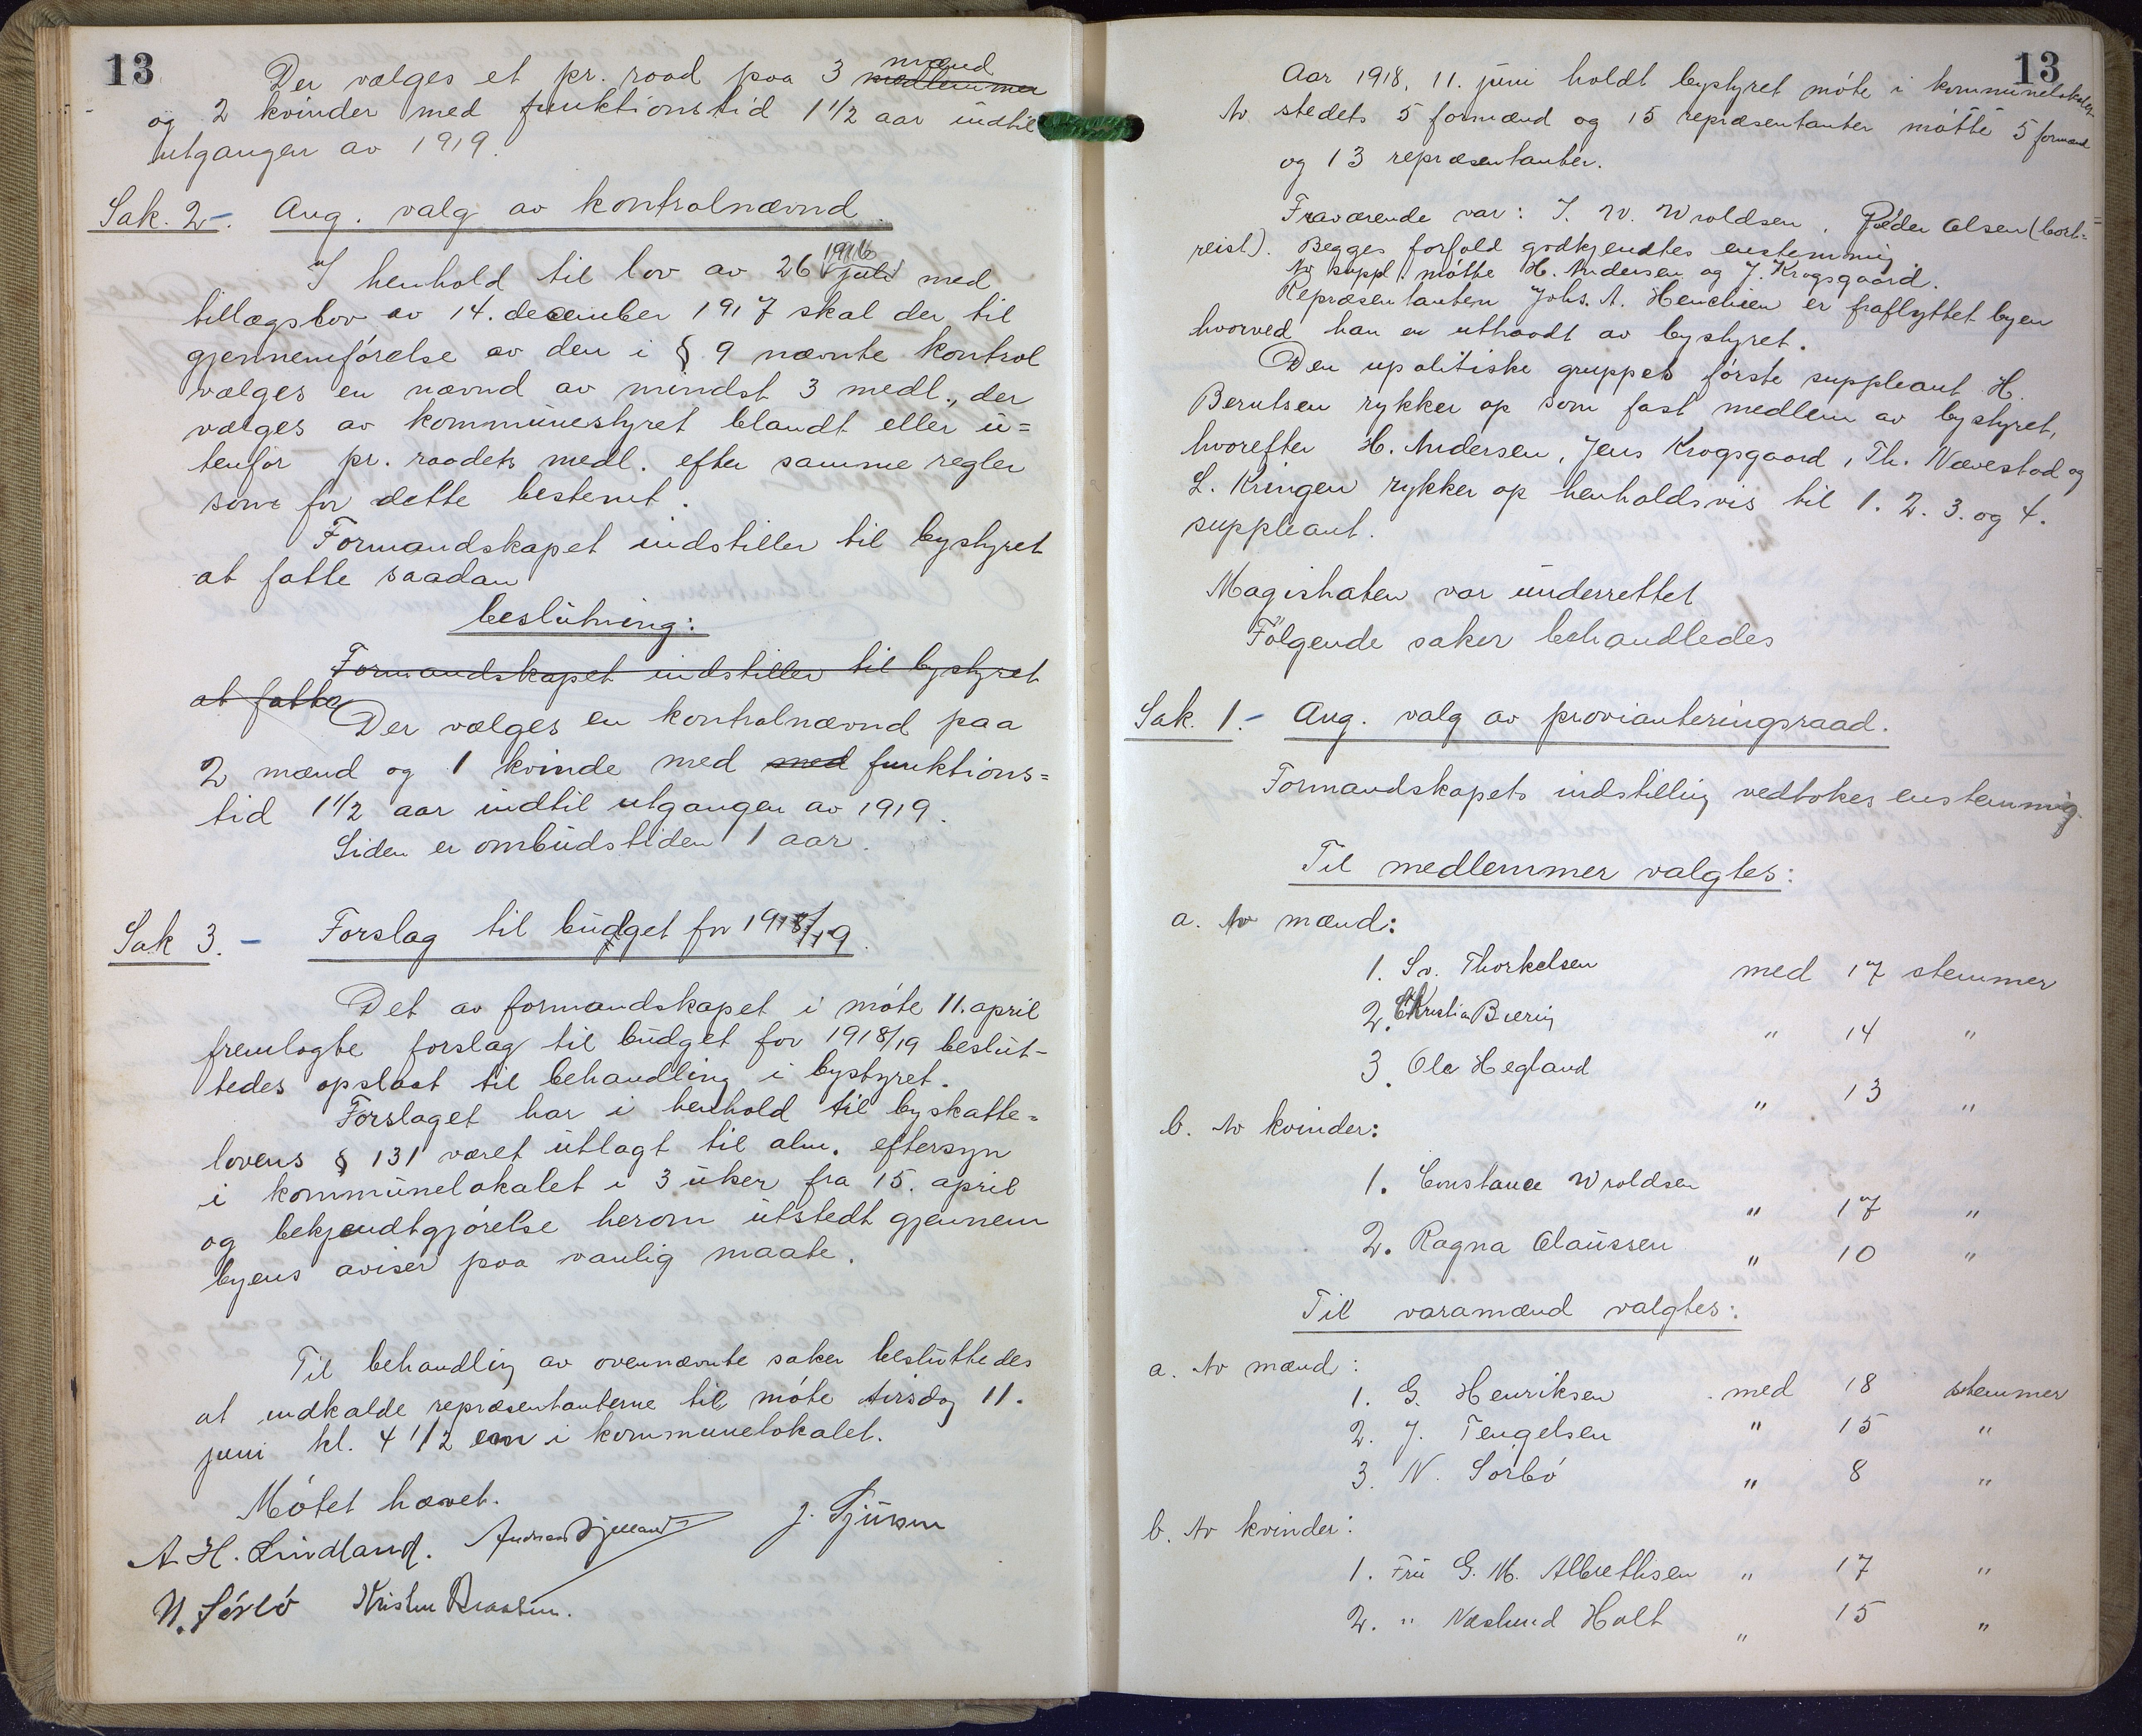 13
Der vælges et pr. raad paa 3 mænd medlemmer
og 2 kvinder med funktionstid 1 1/2 aar indtil
utgangen av 1919.
Sak. 2 - Ang. valg av kontrolnævnd.
I henhold til lov av 26 juli 1916 med
tillægslov av 14. december 1917 skal der til
gjennemførelse av den i § 9 nævnte kontrol
vælges en nævnd av mindst 3 medl., der
vælges av kommunestyret blandt eller u=
tenfor pr. raadets medl. efter samme regler
som for dette bestemt.
Formandskapet indstiller til bystyret
at fatte saadan
beslutning:
Formandskapet indstiller til bystyret
at fatte
Der vælges en kontrolnævnd paa
2 mænd og 1 kvinde med med funktions=
tid 1 1/2 aar indtil utgangen av 1919.
Siden er ombudstiden 1 aar.
Sak 3. - Forslag til budget for 1918/19.
Det av formandskapet i møte 11. april
fremlagte forslag til budget for 1918/19 beslut-
tedes opslaat til behandling i bystyret.
Forslaget har i henhold til byskatte=
lovens § 131 været utlagt til alm. eftersyn
i kommunelokalet i 3 uker fra 15. april
og bekjendtgjørelse herom utstedt gjennem
byens aviser paa vanlig maate.
Til behandling av ovennævnte saker besluttedes
at indkalde repræsentanterne til møte tirsdag 11.
juni kl. 4 1/2 em i kommunelokalet.
Møtet hævet.
A. H. Lindland.
N. Sørbø
13
Aar 1918, 11. juni holdt bystyret møte i kommunelokalet
Av stedets 5 formænd og 15 repræsentanter møtte 5 formænd
og 13 repræsentanter.
Fraværende var: J. W. Wroldsen, Peder Olsen (bort=
reist). Begges forfald godkjendtes enstemmig
Av suppl. møtte H. Andersen og J. Krogsgaard.
Repræsentanten Johs. A. Henchien er fraflyttet byen
hvorved han er uttraadt av bystyret.
Den upolitiske gruppes første suppleant H.
Berntsen rykker op som fast medlem av bystyret,
hvorefter H. Andersen, Jens Krogsgaard, Th. Nævestad og
L. Kringen rykker op henholdsvis til 1. 2. 3. og 4.
suppleant.
Magistraten var underrettet
Følgende saker behandledes
Sak. 1. - Ang. valg av provianteringsraad.
Formandskapets indstilling vedtokes enstemmig.
Til medlemmer valgtes:
a. Av mænd:
1. Sv. Thorkelsen med 17 stemmer
2. Kristian Biering " 14 "
3. Ole Hegland " 13 "
b. Av kvinder:
1. Constance Wroldsen " 17 "
2. Ragna Claussen " 10 "
Til varamænd valgtes:
a. Av mænd:
1. G. Henriksen med 18 stemmer
2. J. Tengelsen " 15 "
3. N. Sørbø " 8 "
b. Av kvinder:
1. Fru G. M. Albrethsen " 17 "
2. " Næslund Holt " 15 "